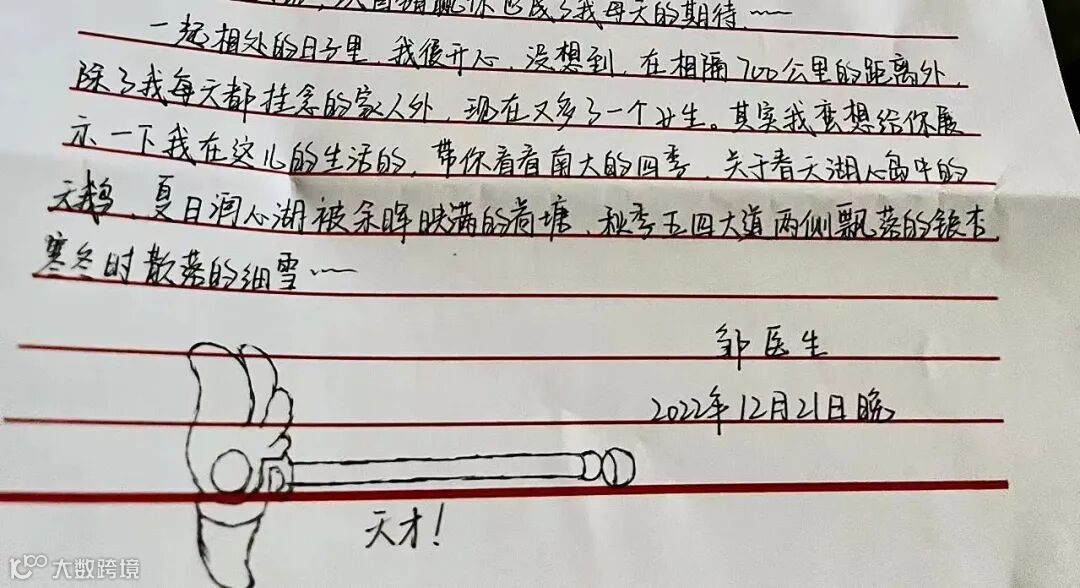 你已成了我每天的期待……
一起相处的日子里，我很开心，没想到，在相隔700公里的距离外，
除了我每天都挂念的家人外，现在又多了一个女生。其实我蛮想给你展
示一下我在这儿的生活的，带你看看南大的四季，关于春天湖心岛中的
天鹅，夏日润心湖被余晖映满的荷塘、秋季五四大道两侧飘落的银杏，
寒冬时散落的细雪……
邹医生
2022年12月21日晚
天才！
大数跨境